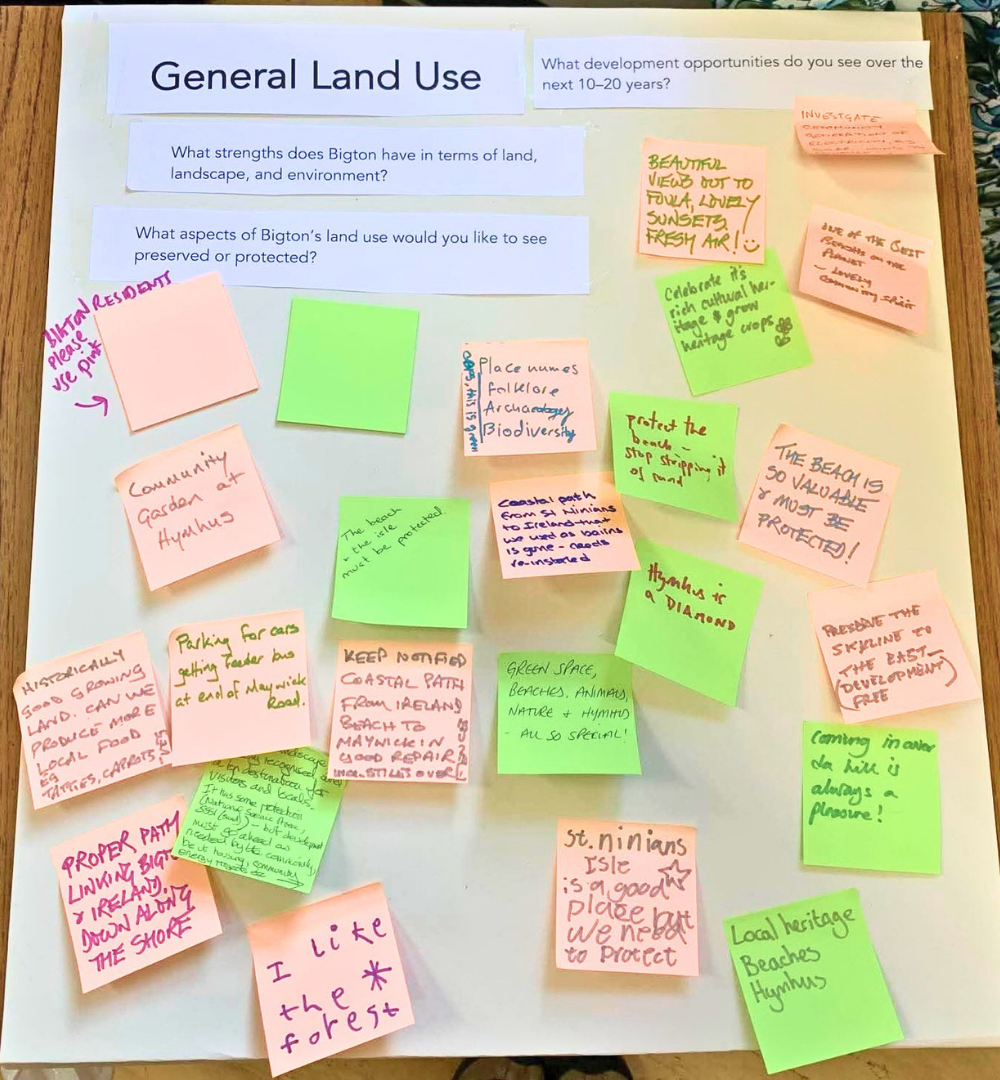 General Land Use
What development opportunities do you see over the
next 10–20 years?
What strengths does Bigton have in terms of land,
landscape, and environment?
What aspects of Bigton's land use would you like to see
preserved or protected?
BIGTON RESIDENTS
please
use pink
INVESTGATE
COMMUNITY
GENERATION OF
BEAUTIFUL
VIEWS OUT TO
FOULA, LOVELY
SUNSETS,
FRESH AIR!
ONE OF THE BEST
BEACHES ON THE
PLANET
- LOVELY
COMMUNITY SPIRIT
Celebrate it's
rich cultural her-
itage & grow
heritage crops
OOPS, this is green
Place names
Folklore
Archaeology
Biodiversity
protect the
beach -
stop stripping it
of sand
THE BEACH IS
SO VALUABLE
& MUST BE
PROTECTED!
Community
Garden at
Hymhus
The beach
+ the isle
must be protected
Coastal path
from St Ninians
to Ireland that
we used as bairns
is gone - needs
re-instated
Hymhus is
a DIAMOND
PRESERVE THE
SKYLINE TO
THE EAST -
(DEVELOPMENT)
FREE
HISTORICALLY
GOOD GROWING
LAND. CAN WE
PRODUCE MORE
LOCAL FOOD
EG
TATTIES, CARROTS
Parking for cars
getting feeder bus
at end of Maywick
Road.
KEEP NOTIFIED
COASTAL PATH
FROM IRELAND
BEACH TO
MAYWICK IN
GOOD REPAIR
INCL. STILES OVER
GREEN SPACE,
BEACHES, ANIMALS,
NATURE + HYMHUS
- ALL SO SPECIAL!
Coming in ower
da hill is
always a
pleasure!
landscape
recognised
as a destination for
visitors and locals.
It has some protection
(National Scenic Area,
SSSI (sand)) - but development
must go ahead as
needed by the community,
be it housing, community
energy projects etc →
PROPER PATH
LINKING BIGTON
& IRELAND.
DOWN ALONG
THE SHORE
I like
the *
forest
st. ninians
Isle
is a good
place but
we need
to protect
Local heritage
Beaches
Hymhus